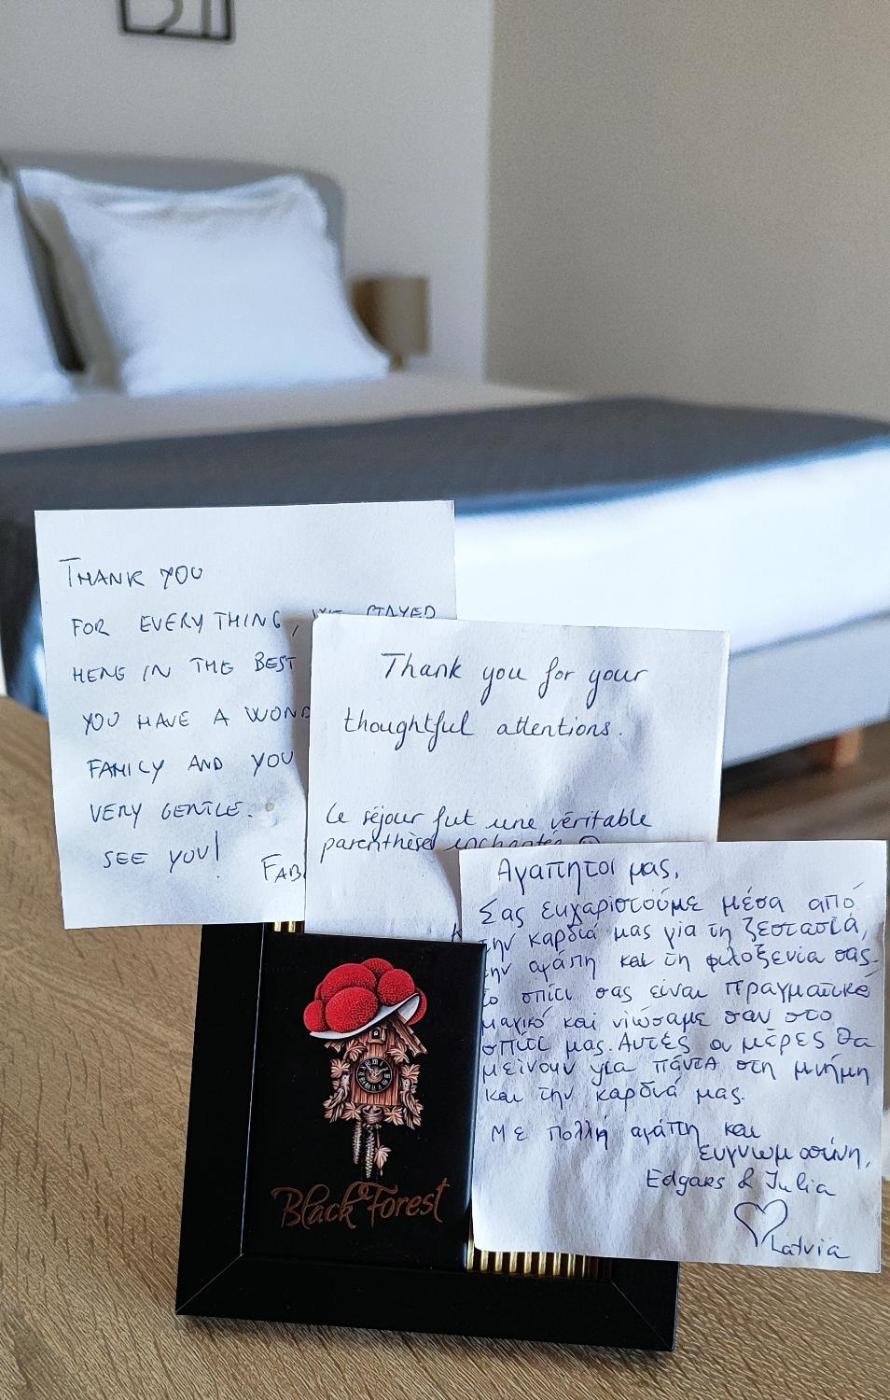 THANK YOU
FOR EVERYTHING, WE STAYED
HERE IN THE BEST
YOU HAVE A WOND
FAMILY AND YOU
VERY GENTLE.
SEE YOU!
FAB
Thank you for your
thoughtful attentions.
Le séjour fut une véritable
parenthèse enchantée
Αγαπητοί μας,
Σας ευχαριστούμε μέσα από
την καρδιά μας για τη ζεστασιά,
την αγάπη και τη φιλοξενία σας.
Το σπίτι σας είναι πραγματικά
μαγικό και νιώσαμε σαν στο
σπίτι μας. Αυτές οι μέρες θα
μείνουν για πάντα στη μνήμη
και την καρδιά μας.
Με πολλή αγάπη και
ευγνωμοσύνη,
Edgars & Julia
Latvia
Black Forest